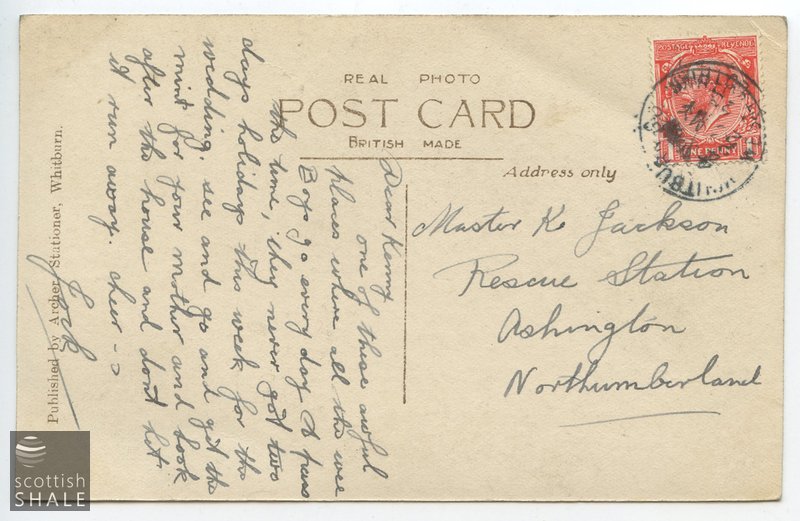 REAL PHOTO
POST CARD
BRITISH MADE
Address only
POSTAGE REVENUE
ONE PENNY
Dear Kenny
one of these awful
places where all the wee
Boys go every day to pass
the time, they never got two
days holidays this week for the
wedding, see and go and get the
mint for your mother and look
after the house and dont let
it run away. cheer-o
Jock
Master K. Jackson
Rescue Station
Ashington
Northumberland
Published by Archer, Stationer, Whitburn.
scottish
SHALE